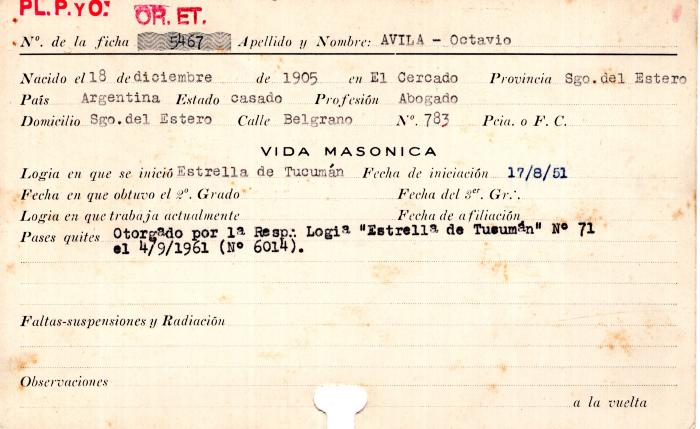 PL.P.yO:
OR. ET.
Nº. de la ficha 5467 Apellido y Nombre: AVILA - Octavio
Nacido el 18 de diciembre de 1905 en El Cercado Provincia Sgo.del Estero
País Argentina Estado casado Profesión Abogado
Domicilio Sgo.del Estero Calle Belgrano Nº. 783 Pcia. o F. C.
VIDA MASONICA
Logia en que se inició Estrella de Tucumán Fecha de iniciación 17/8/51
Fecha en que obtuvo el 2º. Grado Fecha del 3er. Gr∴
Logia en que trabaja actualmente Fecha de afiliación
Pases quites Otorgado por la Resp∴ Logia "Estrella de Tucumán" Nº 71
el 4/9/1961 (Nº 6014).
Faltas-suspensiones y Radiación
Observaciones
a la vuelta